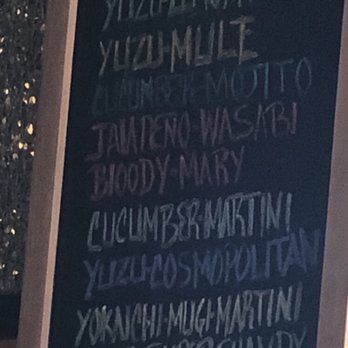 YUZU-MULE
CUCUMBER-MOJITO
JALAPEÑO-WASABI
BLOODY-MARY
CUCUMBER-MARTINI
YUZU-COSMOPOLITAN
YOKAICHI-MUGI-MARTINI